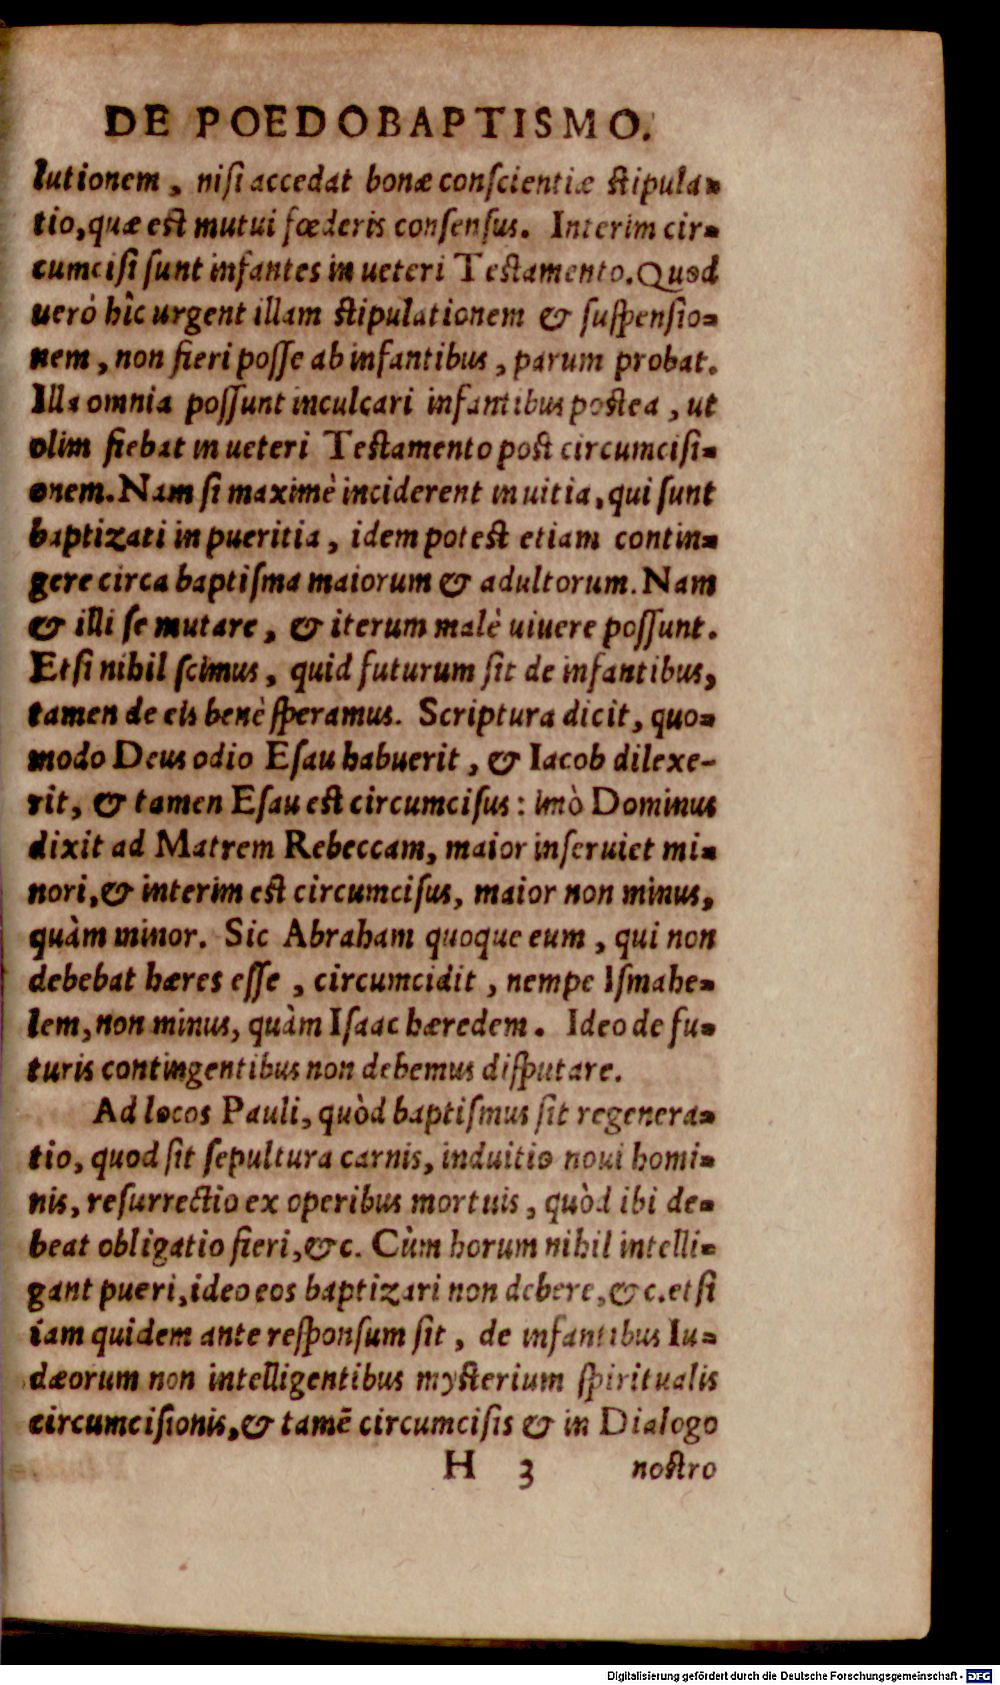 DE POEDOBAPTISMO.
lutionem, niſi accedat bonæ conſcientiæ ſtipula-
tio, quæ eſt mutui fœderis conſenſus. Interim cir-
cumciſi ſunt infantes in ueteri Teſtamento. Quod
uerò hîc urgent illam ſtipulationem & ſuſpenſio-
nem, non fieri poſſe ab infantibus, parum probat.
Illa omnia poſſunt inculcari infantibus poſtea, ut
olim fiebat in ueteri Teſtamento poſt circumciſi-
onem. Nam ſi maximè inciderent in uitia, qui ſunt
baptizati in pueritia, idem poteſt etiam contin-
gere circa baptiſma maiorum & adultorum. Nam
& illi ſe mutare, & iterum malè uiuere poſſunt.
Etſi nihil ſcimus, quid futurum ſit de infantibus,
tamen de eis benè ſperamus. Scriptura dicit, quo-
modo Deus odio Eſau habuerit, & Iacob dilexe-
rit, & tamen Eſau eſt circumciſus: imò Dominus
dixit ad Matrem Rebeccam, maior inſeruiet mi-
nori, & interim eſt circumciſus, maior non minus,
quàm minor. Sic Abraham quoque eum, qui non
debebat hæres eſſe, circumcidit, nempe Iſmahe-
lem, non minus, quàm Iſaac hæredem. Ideo de fu-
turis contingentibus non debemus diſputare.
Ad locos Pauli, quòd baptiſmus ſit regenera-
tio, quod ſit ſepultura carnis, induitio noui homi-
nis, reſurrectio ex operibus mortuis, quòd ibi de-
beat obligatio fieri, &c. Cùm horum nihil intelli-
gant pueri, ideo eos baptizari non debere, &c. etſi
iam quidem ante reſponſum ſit, de infantibus Iu-
dæorum non intelligentibus myſterium ſpiritualis
circumciſionis, & tamē circumciſis & in Dialogo
H 3 noſtro
Digitalisierung gefördert durch die Deutsche Forschungsgemeinschaft - DFG